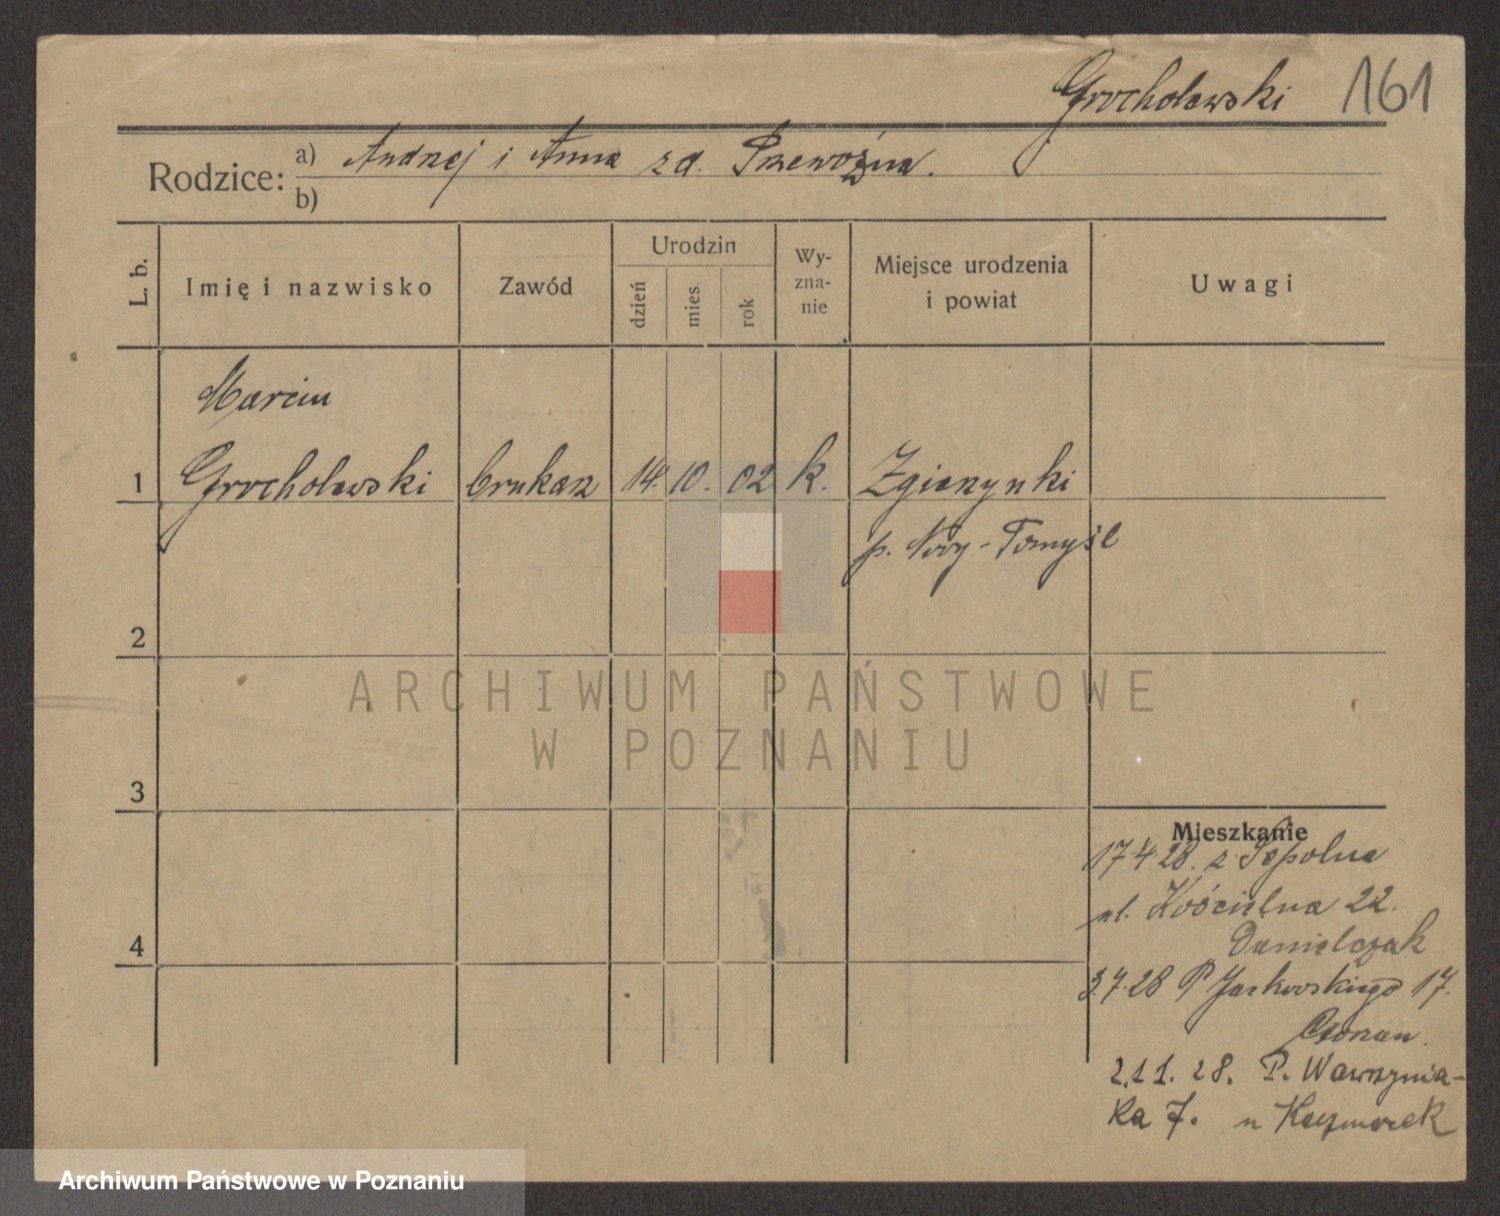 Grocholewski 161
Rodzice: a) Andrzej i Anna z d. Przewoźna.
b)
L. b. Imię i nazwisko Zawód Urodzin dzień mies. rok Wy-
zna-
nie Miejsce urodzenia
i powiat Uwagi
Marcin
1 Grocholewski brukarz 14. 10. 02 k. Zgierzynki
p. Nowy-Tomyśl
2
ARCHIWUM PAŃSTWOWE
W POZNANIU
3
Mieszkanie
17 4 28. z Sępolna
ul. Kościelna 22.
4 Danielczak
3.7.28 P Jackowskiego 17.
2.11.28. P. Wawrzynia-
ka 7. u Kaczmarek
Archiwum Państwowe w Poznaniu